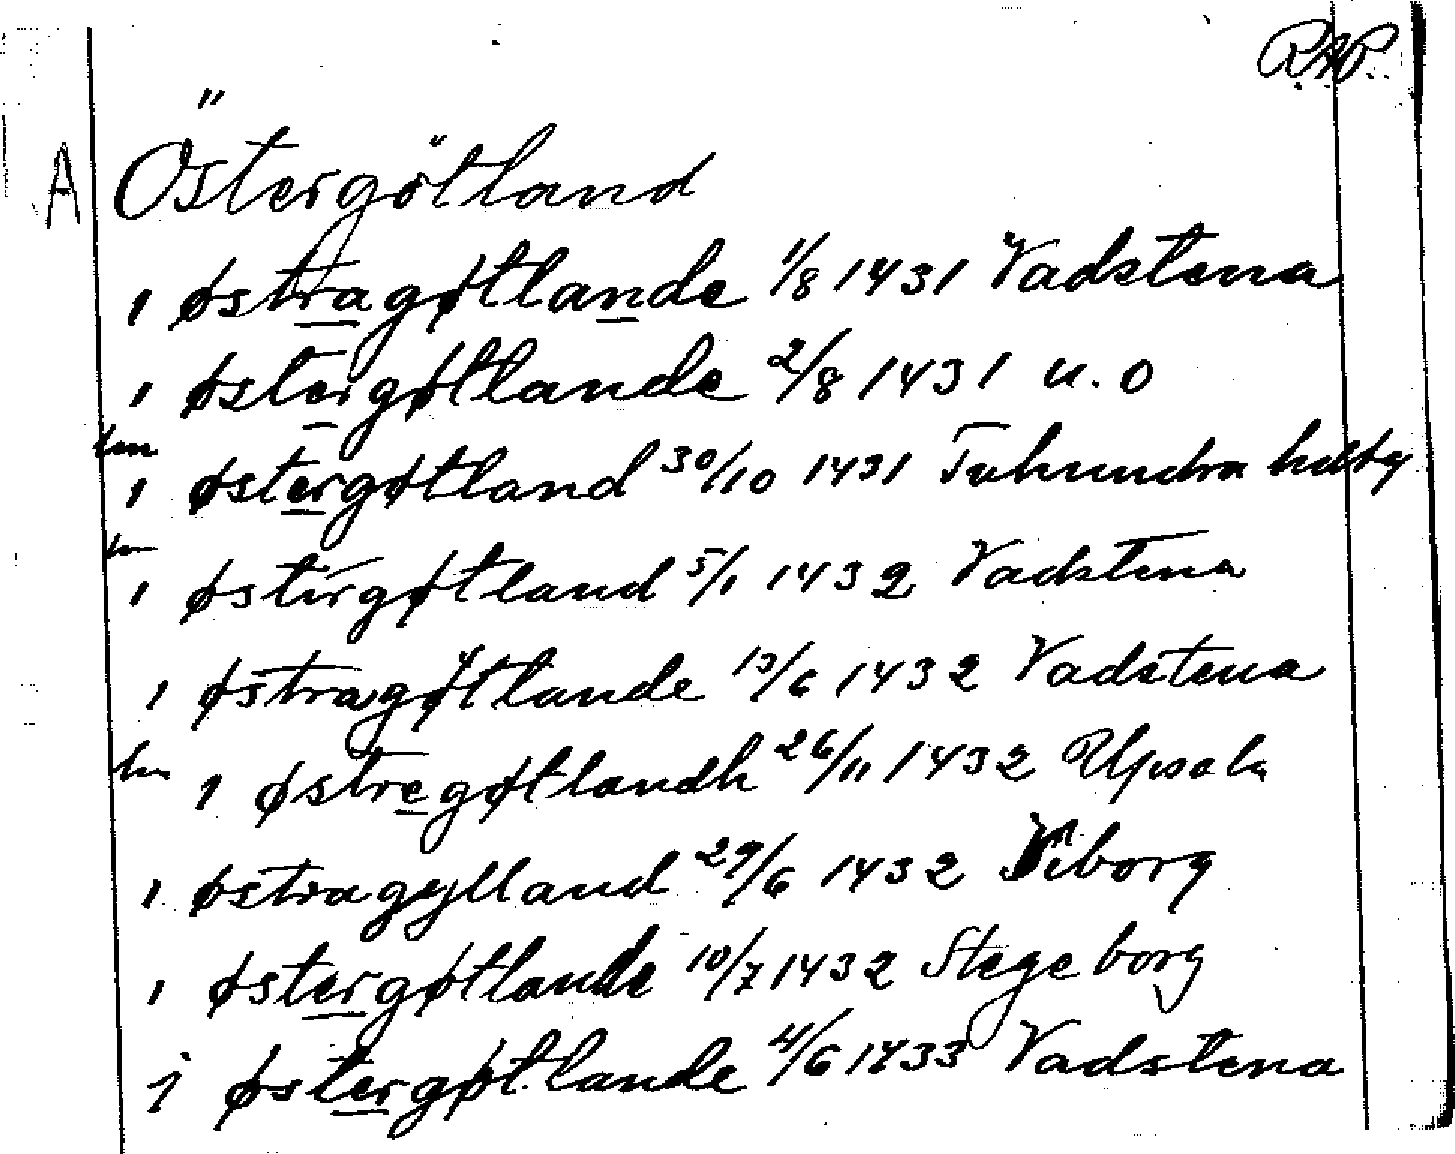 RAP.
A Östergötland
ı østragøtlande 1/8 1431 Vadstena
ı østergøtlande 2/8 1431 u.o
ı østergøtland 30/10 1431
ı østergøtland 5/1 1432 Vadstena
ı østragøtlande 13/6 1432 Vadstena
ı østregøtlandh 26/11 1432 Upsala
ı østragylland 29/6 1432 Viborg
ı østergøtlande 10/7 1432 Stegeborg
j østergøtlande 4/6 1433 Vadstena